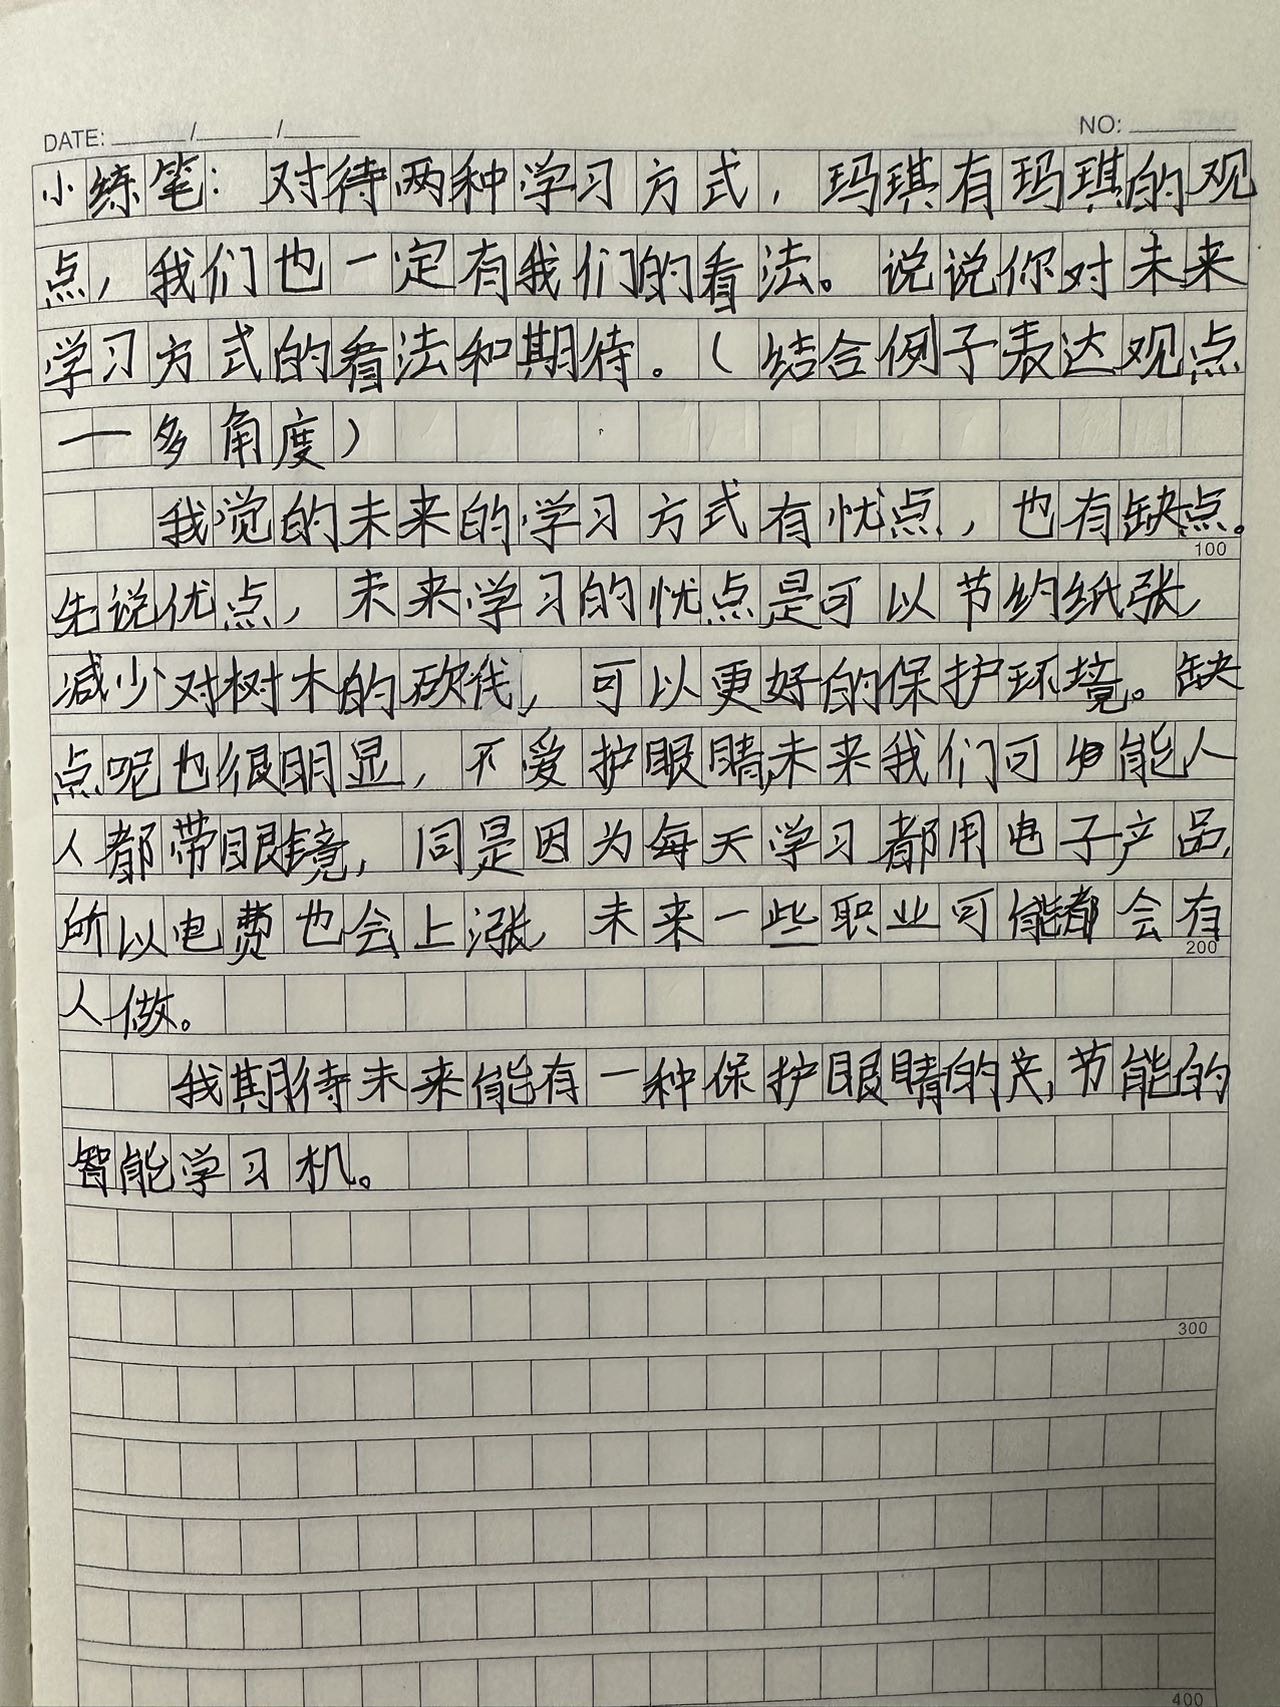 DATE: / /
NO:
小练笔：对待两种学习方式，玛琪有玛琪的观
点，我们也一定有我们的看法。说说你对未来
学习方式的看法和期待。（结合例子表达观点
一多角度）
我觉的未来的学习方式有忧点，也有缺点。
100
先说优点，未来学习的忧点是可以节约纸张，
减少对树木的砍伐，可以更好的保护环境。缺
点呢也很明显，不爱护眼睛，未来我们可能人
人都带眼镜，同是因为每天学习都用电子产品，
所以电费也会上涨，未来一些职业可能都会有
200
人做。
我期待未来能有一种保护眼睛的，节能的
智能学习机。
300
400